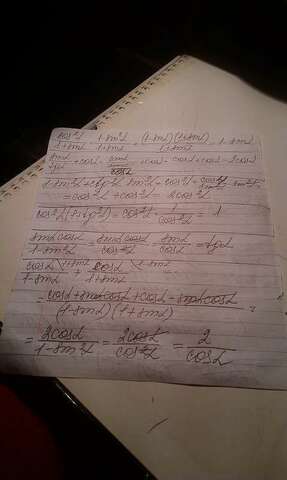 cos²α/(1+sinα) = (1-sin²α)/(1+sinα) = (1-sinα)(1+sinα)/(1+sinα) = 1-sinα
sinα/tgα + cosα = sinα/(sinα/cosα) + cosα = cosα + cosα = 2cosα
1-sin²α + ctg²α · sin²α = cos²α + cos²α/sin²α · sin²α =
= cos²α + cos²α = 2cos²α
cos²α(1+tg²α) = cos²α · 1/cos²α = 1
sinα cosα/(1-sin²α) = sinα cosα/cos²α = sinα/cosα = tgα
cosα/(1-sinα) + cosα/(1+sinα) =
= (cosα + sinα cosα + cosα - sinα cosα)/((1-sinα)(1+sinα)) =
= 2cosα/(1-sin²α) = 2cosα/cos²α = 2/cosα